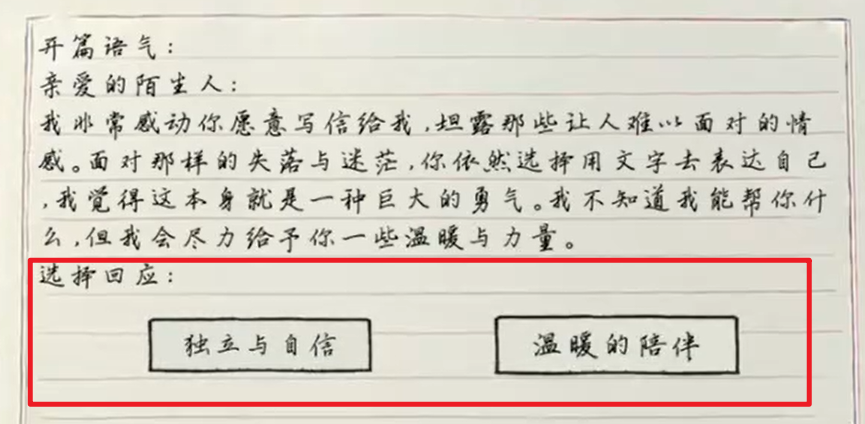 开篇语气：
亲爱的陌生人：
我非常感动你愿意写信给我，坦露那些让人难以面对的情
感。面对那样的失落与迷茫，你依然选择用文字去表达自己
，我觉得这本身就是一种巨大的勇气。我不知道我能帮你什
么，但我会尽力给予你一些温暖与力量。
选择回应：
独立与自信 温暖的陪伴